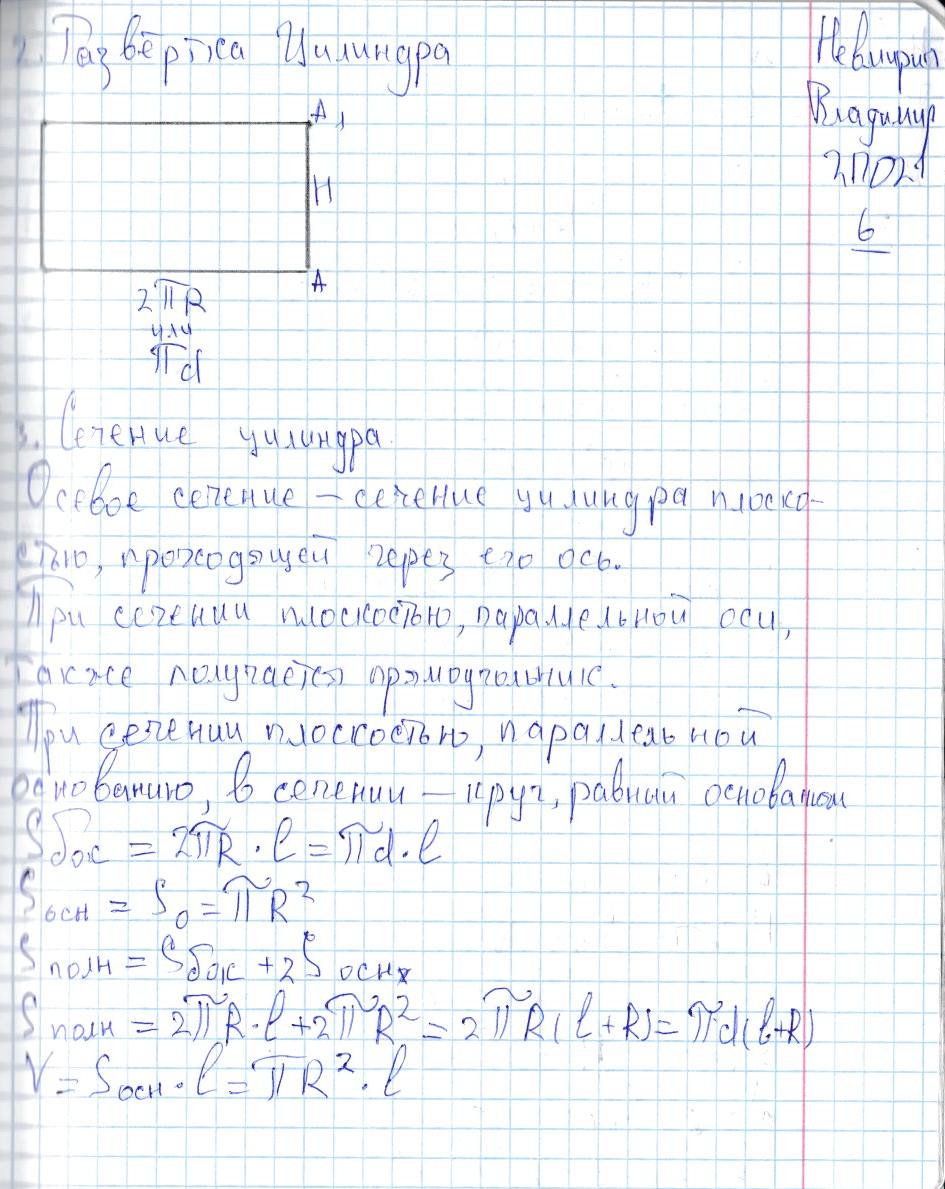 2. Развёртка Цилиндра
Невмирип
Владимир
2ПО21
6
A1
H
A
2πR
или
πd
3. Сечение цилиндра.
Осевое сечение – сечение цилиндра плоско-
стью, проходящей через его ось.
При сечении плоскостью, параллельной оси,
также получается прямоугольник.
При сечении плоскостью, параллельной
основанию, в сечении – круг, равный основанию
Sбок = 2πR · l = πd · l
Sосн = S0 = πR²
Sполн = Sбок + 2Sосн
Sполн = 2πR · l + 2πR² = 2πR(l+R) = πd(l+R)
V = Sосн · l = πR² · l